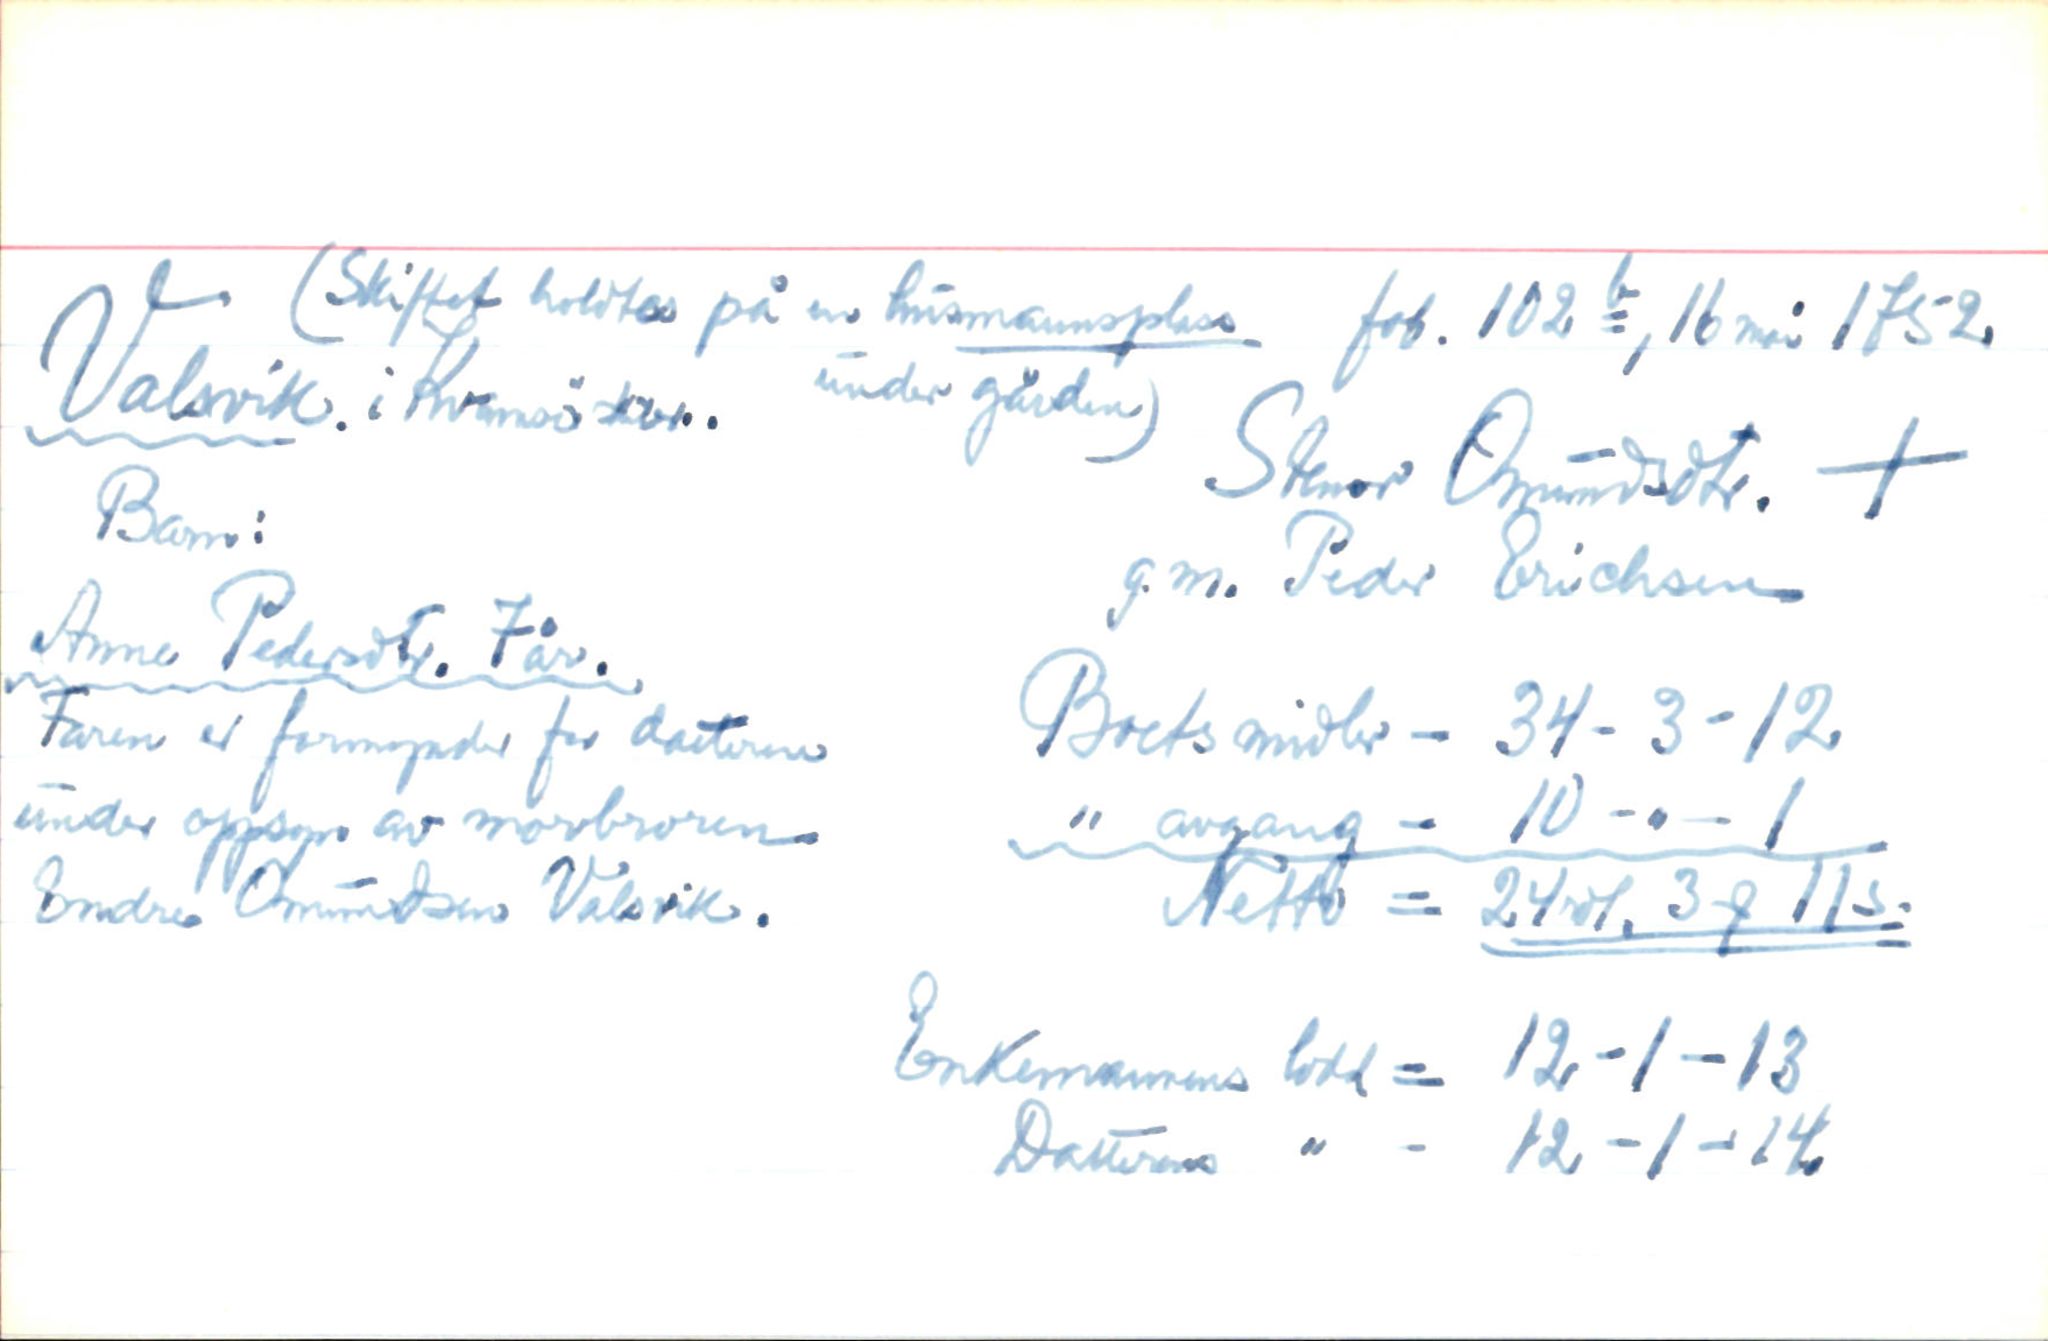 (Skiftet holdtes på en husmannsplass
under gården)
fol. 102 b, 16 mai 1752.
Valsvik. i Kvamsø skr..
Stenor Omundsdtr. +
g.m. Peder Erichsen
Barn:
Anne Pedersdtr. 7 år.
Faren er formynder for datteren
under oppsyn av morbroren
Endre Omundsen Valsvik.
Boets midler - 34 - 3 - 12
" avgang - 10 - " - 1
Netto = 24 rdl. 3 ꝗ 11 s.
Enkemannens lodd = 12 - 1 - 13
Datterens " - 12 - 1 - 14